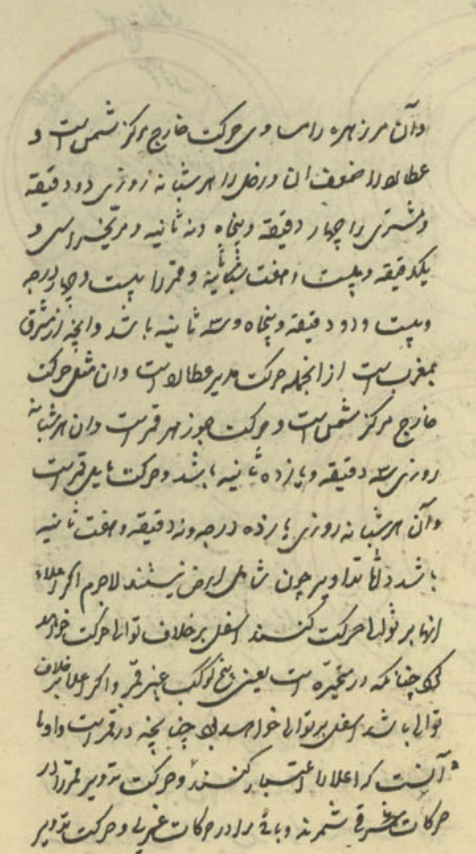 وآن مر زهره را مساوی حرکت خارج مرکز شمس است و
عطارد را ضعف آن و زحل را هر شبانه روزی دو دقیقه
و مشتری را چهار دقیقه و پنجاه و نه ثانیه و مریخ را سی و
یکدقیقه و بیست و هفت ثانیه و قمر را بیست و چهار درجه
و بیست و دو دقیقه و پنجاه و سه ثانیه باشد و آنچه از مشرق
بمغرب است از آنجمله حرکت مدیر عطارد است و آن مثل حرکت
خارج مرکز شمس است و حرکت جوزهر قمر است و آن هر شبانه
روزی سه دقیقه و یازده ثانیه باشد و حرکت مایل قمر است
و آن هر شبانه روزی یازده درجه و نه دقیقه و هفت ثانیه
باشد و اما تداویر چون شامل ارض نیستند لاجرم اگر اعلاء
آنها بر توالی حرکت کنند اسفل بر خلاف توالی حرکت خواهد
کرد چنانکه در متحیره است یعنی پنج کوکب غیر قمر و اگر اعلا بر خلاف
توالی باشد اسفل بر توالی خواهد بود چنانچه در قمر است و اولی
آنست که اعلا را اعتبار کنند و حرکت تدویر قمر را در
حرکات شرقی شمرند و باقی را در حرکات غربی و حرکت تدویر